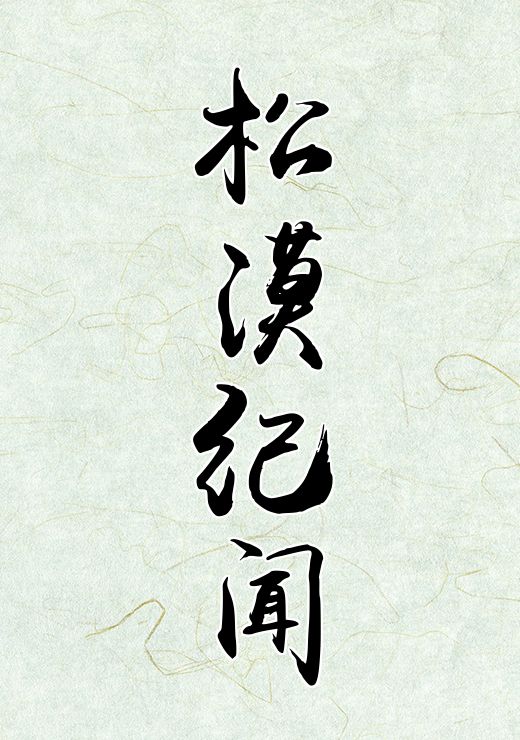 松漠纪闻